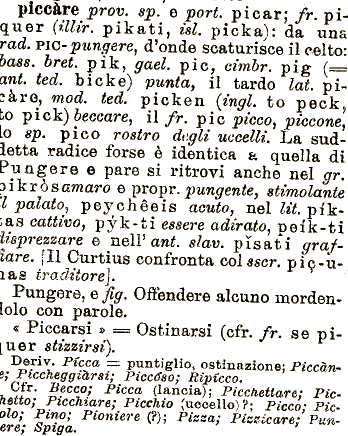 piccàre prov. sp. e port. picar; fr. pi-
quer (illir. pikati, isl. picka): da una
rad. PIC- pungere, d'onde scaturisce il celto:
bass. bret. pik, gael. pic, cimbr. pig (=
ant. ted. bicke) punta, il tardo lat. pi-
càre, mod. ted. picken (ingl. to peck,
to pick) beccare, il fr. pic picco, piccone,
lo sp. pico rostro degli uccelli. La sud-
detta radice forse è identica a quella di
Pungere e pare si ritrovi anche nel gr.
pikròs amaro e propr. pungente, stimolante
il palato, peychêeis acuto, nel lit. pik-
tas cattivo, pỳk-ti essere adirato, peik-ti
disprezzare e nell' ant. slav. pĭsati graf-
fiare. [Il Curtius confronta col sscr. piç-u-
nas traditore].
Pungere, e fig. Offendere alcuno morden-
dolo con parole.
« Piccarsi » = Ostinarsi (cfr. fr. se pi-
quer stizzirsi).
Deriv. Picca = puntiglio, ostinazione; Piccàn-
te; Piccheggiàrsi; Piccóso; Ripicco.
Cfr. Becco; Picca (lancia); Picchettare; Pic-
chetto; Picchiare; Picchio (uccello)?; Picco; Pic-
olo; Pino; Pioniere (?); Pizza; Pizzicare; Pun-
gere; Spiga.